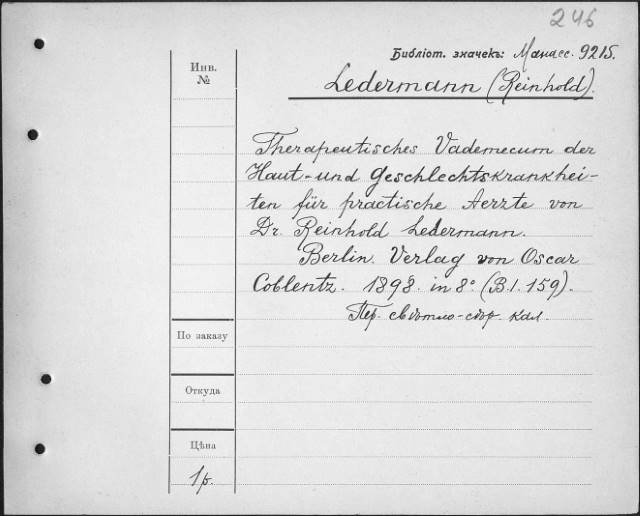 246
Библіот. значекъ: Манасс. 9215.
Инв.
№
Ledermann (Reinhold).
Therapeutisches Vademecum der
Haut- und Geschlechtskrankhei-
ten für practische Aerzte von
Dr. Reinhold Ledermann.
Berlin. Verlag von Oscar
Coblentz. 1898. in 8° (B.1.159).
Пер. свѣтло-сѣр. кал.
По заказу
Откуда
Цѣна
1р.